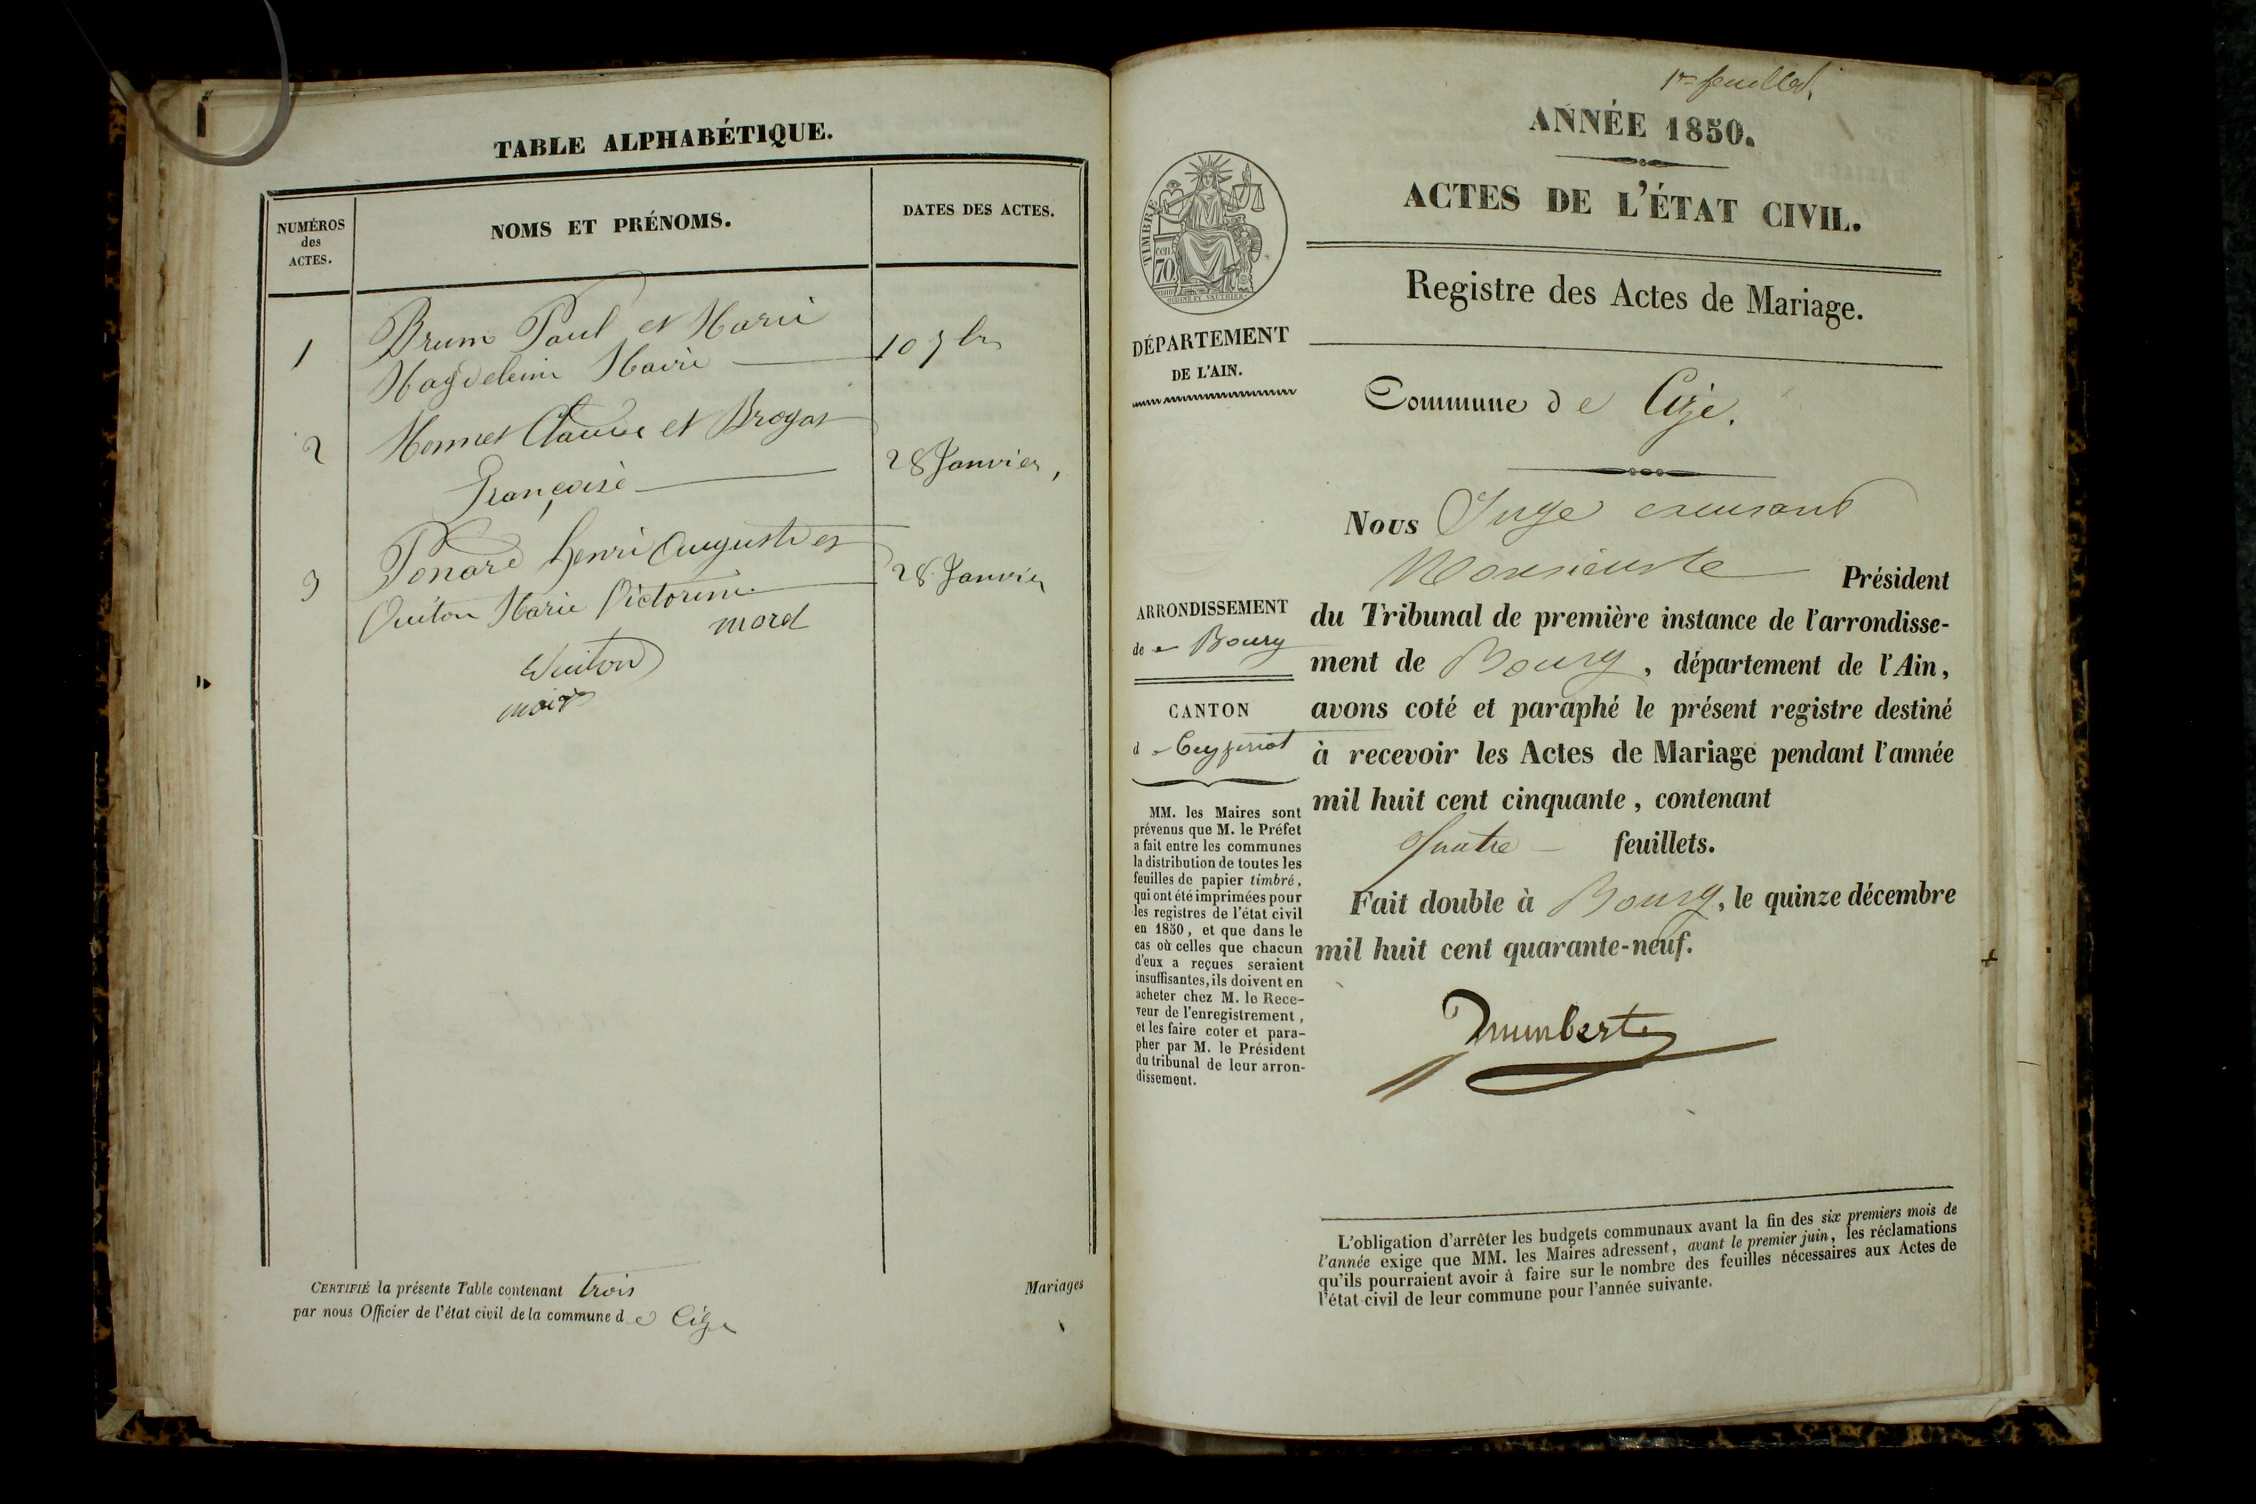 TABLE ALPHABÉTIQUE.
NUMÉROS
des
ACTES.
NOMS ET PRÉNOMS.
DATES DES ACTES.
1
Brum Paul et Marie
Magdeleine Marie
10 7bre
2
Monnet Claude et Broyat
Françoise
28 Janvier,
3
Ponard henri Auguste et
Ouiton Marie Victorine
28 Janvier
morel
maire
CERTIFIÉ la présente Table contenant trois Mariages
par nous Officier de l'état civil de la commune d e Cize
1er feuillet.
ANNÉE 1850.
ACTES DE L'ÉTAT CIVIL.
Registre des Actes de Mariage.
TIMBRE
70
DÉPARTEMENT
DE L'AIN.
Commune d e Cize.
Nous Juge
Monsieur le Président
du Tribunal de première instance de l'arrondisse-
ment de Bourg, département de l'Ain,
avons coté et paraphé le présent registre destiné
à recevoir les Actes de Mariage pendant l'année
mil huit cent cinquante, contenant
quatre feuillets.
Fait double à Bourg, le quinze décembre
mil huit cent quarante-neuf.
ARRONDISSEMENT
de Bourg
CANTON
d e Ceyzeriat
MM. les Maires sont
prévenus que M. le Préfet
a fait entre les communes
la distribution de toutes les
feuilles de papier timbré,
qui ont été imprimées pour
les registres de l'état civil
en 1850, et que dans le
cas où celles que chacun
d'eux a reçues seraient
insuffisantes, ils doivent en
acheter chez M. le Rece-
veur de l'enregistrement,
et les faire coter et para-
pher par M. le Président
du tribunal de leur arron-
dissement.
L'obligation d'arrêter les budgets communaux avant la fin des six premiers mois de
l'année exige que MM. les Maires adressent, avant le premier juin, les réclamations
qu'ils pourraient avoir à faire sur le nombre des feuilles nécessaires aux Actes de
l'état civil de leur commune pour l'année suivante.